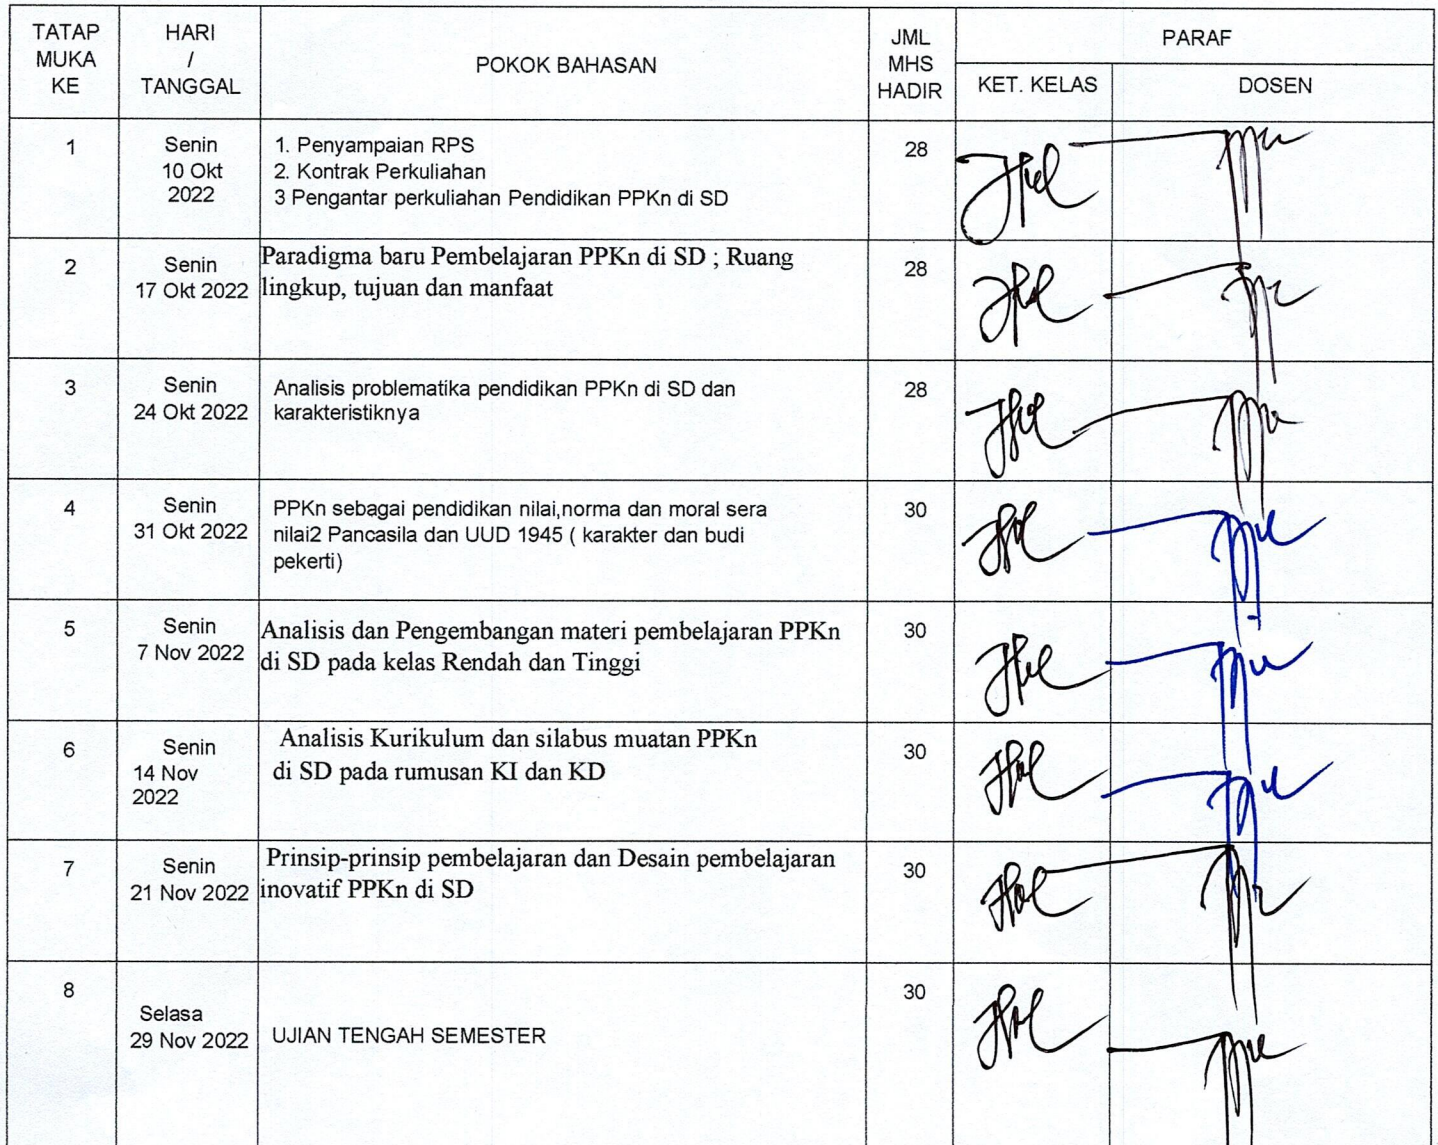 TATAP
MUKA
KE
HARI
/
TANGGAL
POKOK BAHASAN
JML
MHS
HADIR
PARAF
KET. KELAS
DOSEN
1
Senin
10 Okt
2022
1. Penyampaian RPS
2. Kontrak Perkuliahan
3 Pengantar perkuliahan Pendidikan PPKn di SD
28
2
Senin
17 Okt 2022
Paradigma baru Pembelajaran PPKn di SD ; Ruang
lingkup, tujuan dan manfaat
28
3
Senin
24 Okt 2022
Analisis problematika pendidikan PPKn di SD dan
karakteristiknya
28
4
Senin
31 Okt 2022
PPKn sebagai pendidikan nilai,norma dan moral sera
nilai2 Pancasila dan UUD 1945 ( karakter dan budi
pekerti)
30
5
Senin
7 Nov 2022
Analisis dan Pengembangan materi pembelajaran PPKn
di SD pada kelas Rendah dan Tinggi
30
6
Senin
14 Nov
2022
Analisis Kurikulum dan silabus muatan PPKn
di SD pada rumusan KI dan KD
30
7
Senin
21 Nov 2022
Prinsip-prinsip pembelajaran dan Desain pembelajaran
inovatif PPKn di SD
30
8
Selasa
29 Nov 2022
UJIAN TENGAH SEMESTER
30